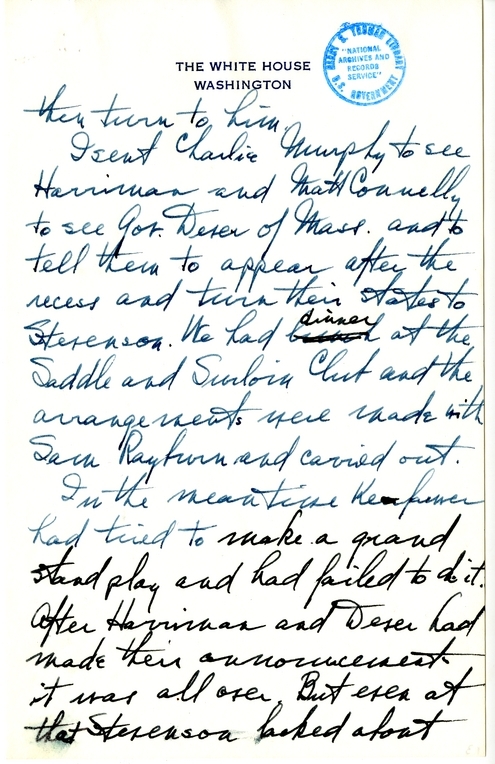 THE WHITE HOUSE
WASHINGTON
HARRY S. TRUMAN LIBRARY
"NATIONAL
ARCHIVES AND
RECORDS
SERVICE"
U.S. GOVERNMENT
then turn to him.
I sent Charlie Murphy to see
Harriman and Matt Connelly
to see Gov. Dever of Mass. and to
tell them to appear after the
recess and turn their states to
Stevenson. We had dinner at the
Saddle and Surloin Club and the
arrangements were made with
Sam Rayburn and carried out.
In the meantime Kefauver
had tried to make a grand
stand play and had failed to do it.
After Harriman and Dever had
made their announcement
it was all over. But even at
that Stevenson lacked about